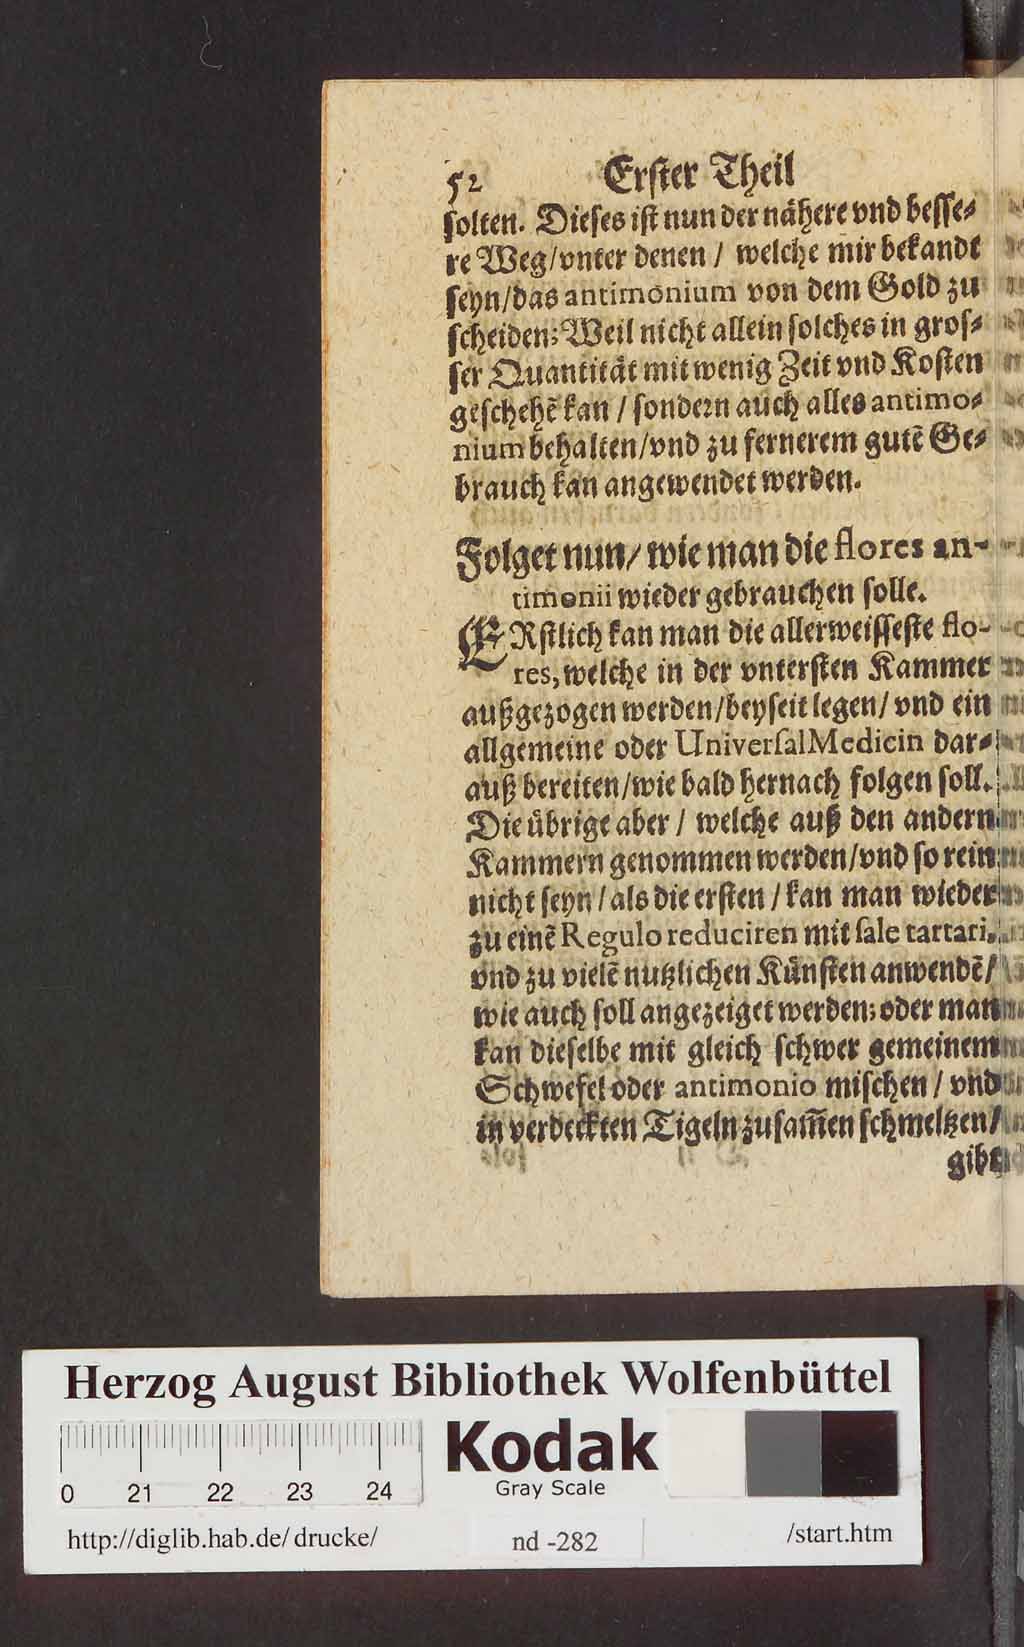 52 Erster Theil
solten. Dieses ist nun der nähere vnd besse⸗
re Weg/vnter denen / welche mir bekandt
seyn/das antimonium von dem Gold zu
scheiden; Weil nicht allein solches in gros⸗
ser Quantität mit wenig Zeit vnd Kosten
geschehẽ kan / sondern auch alles antimo⸗
nium behalten/vnd zu fernerem gutẽ Ge⸗
brauch kan angewendet werden.
Folget nun/ wie man die flores an-
timonii wieder gebrauchen solle.
ERstlich kan man die allerweisseste flo-
res, welche in der vntersten Kammer
außgezogen werden/beyseit legen/ vnd ein
allgemeine oder Universal Medicin dar⸗
auß bereiten/wie bald hernach folgen soll.
Die übrige aber / welche auß den andern
Kammern genommen werden/vnd so rein
nicht seyn / als die ersten / kan man wieder
zu einẽ Regulo reduciren mit sale tartari,
vnd zu vielẽ nutzlichen Künsten anwendẽ/
wie auch soll angezeiget werden; oder man
kan dieselbe mit gleich schwer gemeinem
Schwefel oder antimonio mischen / vnd
in verdeckten Tigeln zusam̃en schmeltzen/
gibt
Herzog August Bibliothek Wolfenbüttel
0 21 22 23 24
Kodak
Gray Scale
http://diglib.hab.de/drucke/ nd -282 /start.htm